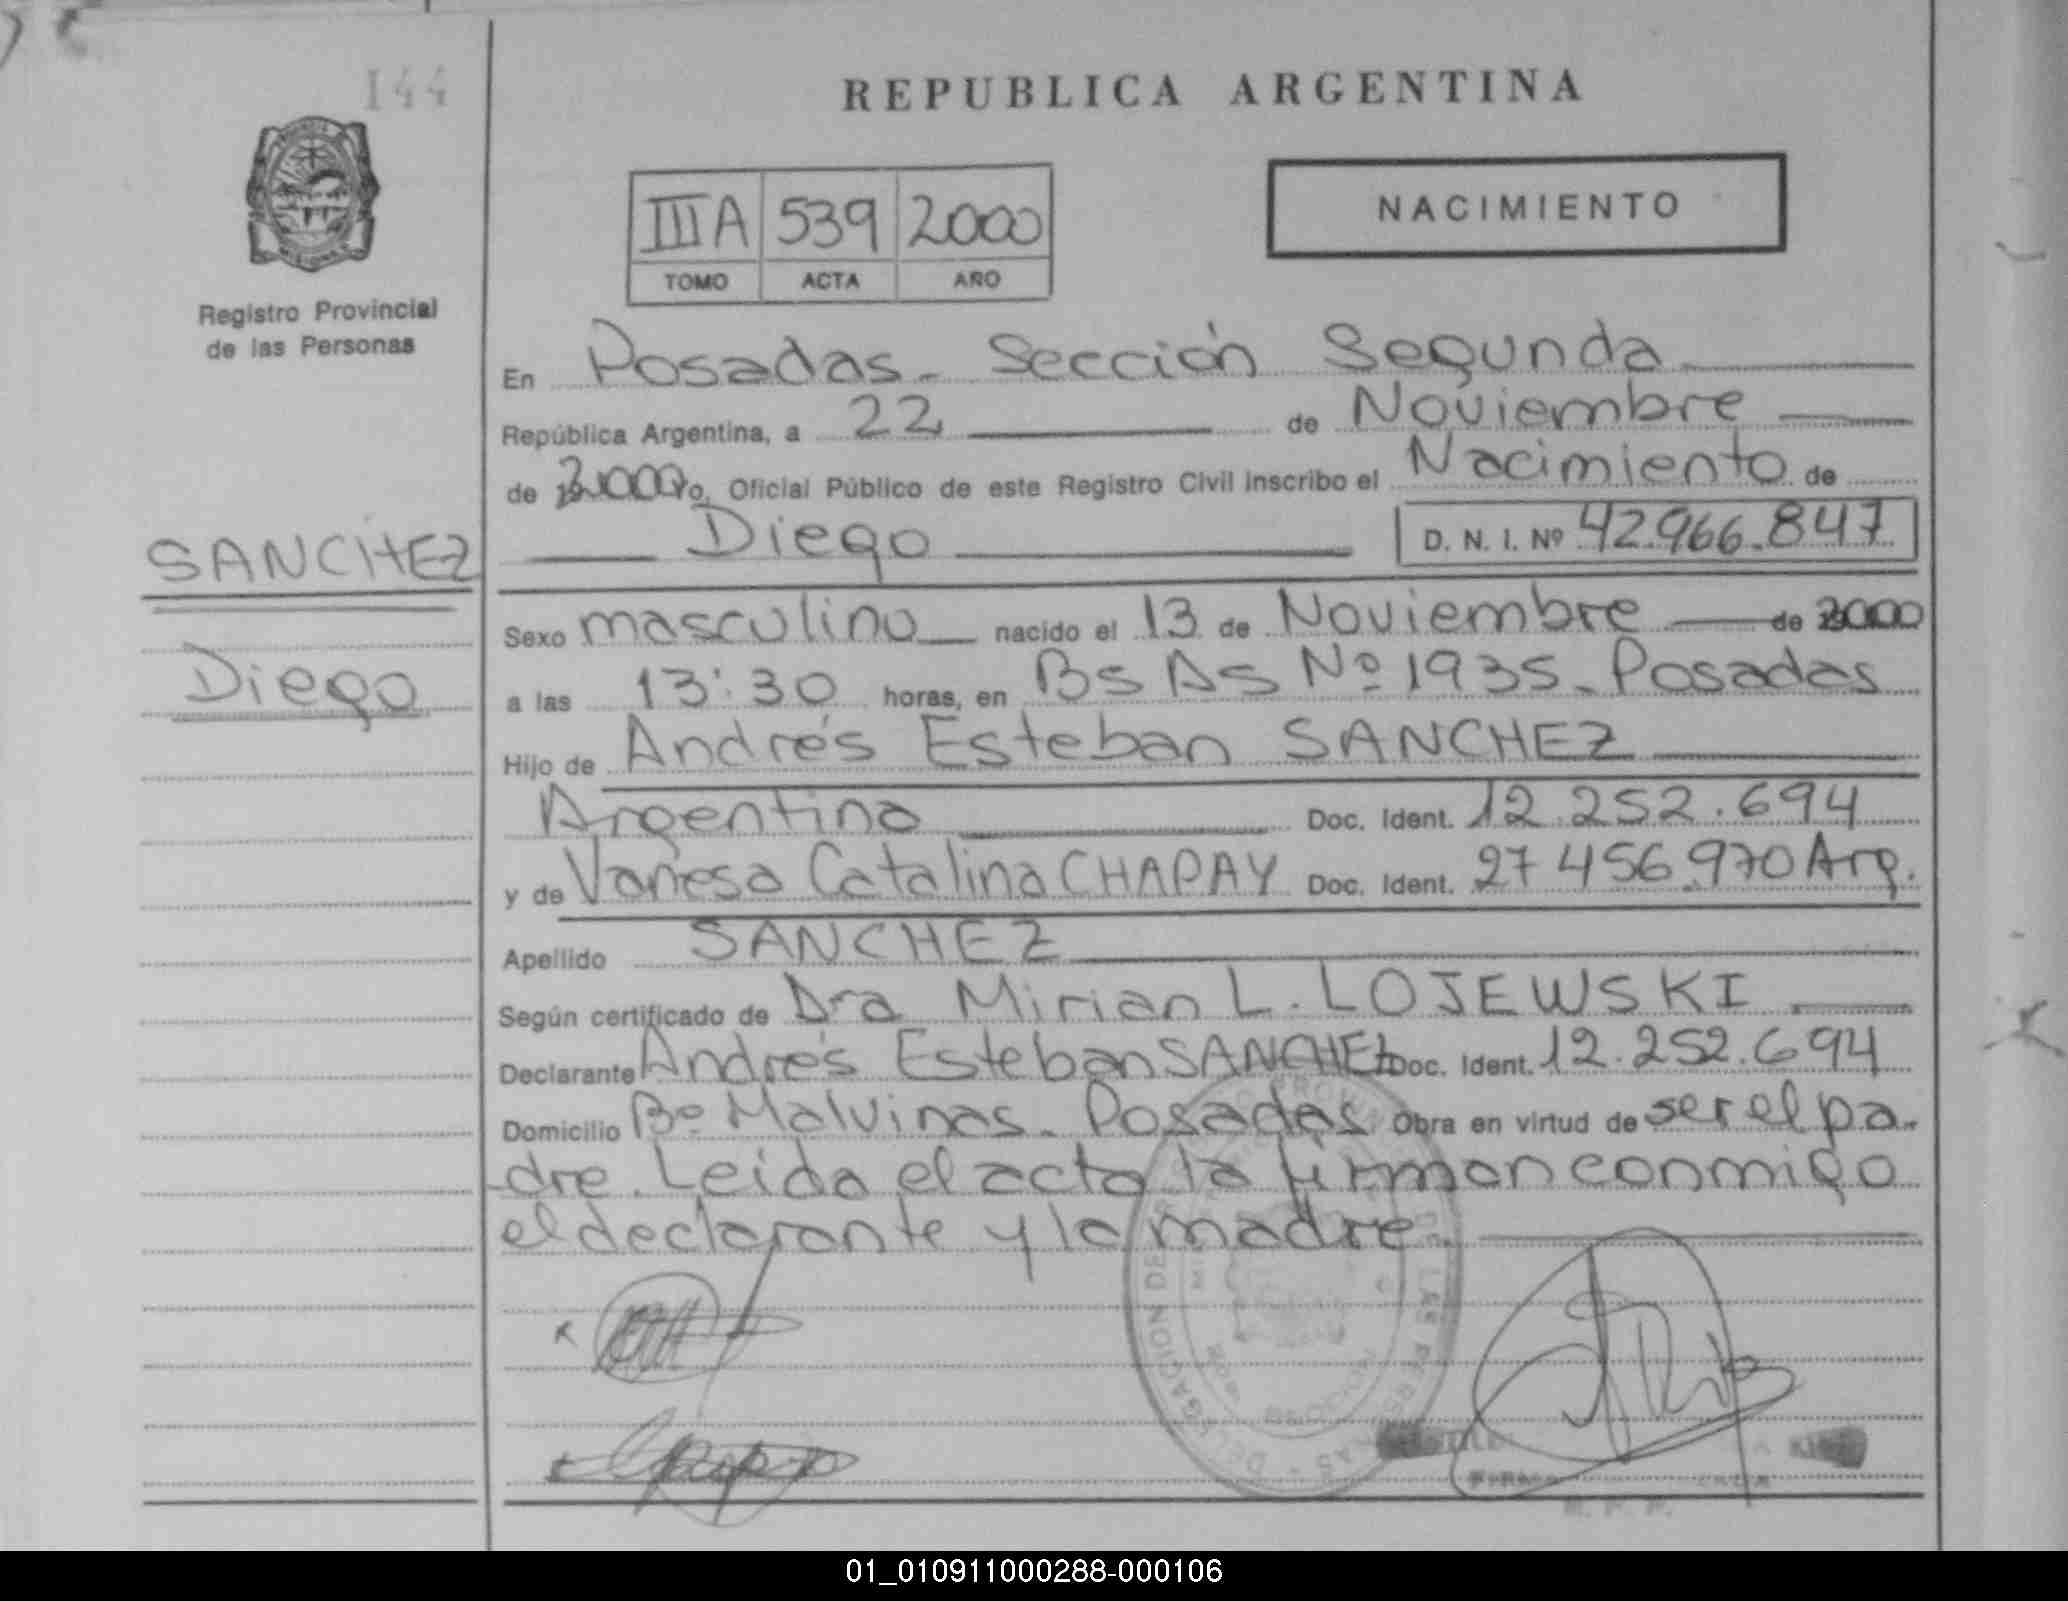 144
REPUBLICA ARGENTINA
NACIMIENTO
IIIA 539 2000
TOMO ACTA AÑO
Registro Provincial
de las Personas
En Posadas - Sección Segunda
República Argentina, a 22 de Noviembre
de 2000 yo, Oficial Público de este Registro Civil inscribo el Nacimiento de
Diego D. N. I. Nº 42.966.847
SANCHEZ
Diego
Sexo masculino nacido el 13 de Noviembre de 2000
a las 13:30 horas, en Bs As Nº 1935 - Posadas
Hijo de Andrés Esteban SANCHEZ
Argentino Doc. Ident. 12.252.694
y de Vanesa Catalina CHAPAY Doc. Ident. 27 456.970 Arg.
Apellido SANCHEZ
Según certificado de Dra Mirian L. LOJEWSKI
Declarante Andrés Esteban SANCHEZ Doc. Ident. 12.252.694
Domicilio Bº Malvinas - Posadas Obra en virtud de ser el pa-
dre. Leida el acta la firman conmigo
el declarante y la madre.
DELEGACION DE
SECCION
01_010911000288-000106